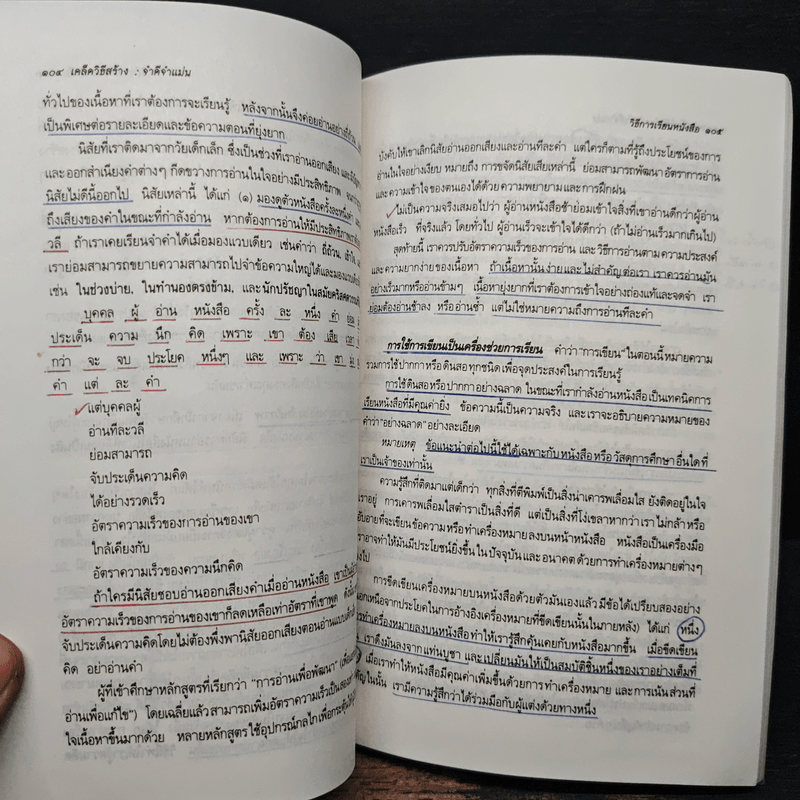 ๑๐๔ เคล็ดวิธีสร้าง : จำดีจำแม่น
ทั่วไปของเนื้อหาที่เราต้องการจะเรียนรู้ หลังจากนั้นจึงค่อยอ่านอย่างถี่ถ้วน
เป็นพิเศษต่อรายละเอียดและข้อความตอนที่ยุ่งยาก
นิสัยที่เราติดมาจากวัยเด็กเล็ก ซึ่งเป็นช่วงที่เราอ่านออกเสียง
และออกสำเนียงคำต่างๆ กีดขวางการอ่านในใจอย่างมีประสิทธิภาพ
นิสัยไม่ดีนี้ออกไป นิสัยเหล่านี้ ได้แก่ (๑) มองดูตัวหนังสือครั้งละหนึ่งคำ
ถึงเสียงของคำในขณะที่กำลังอ่าน หากต้องการอ่านให้มีประสิทธิภาพ
วลี ถ้าเราเคยเรียนจำคำได้เมื่อมองแวบเดียว เช่นคำว่า ถี่ถ้วน, เข้าใจ
เราย่อมสามารถขยายความสามารถไปจำข้อความใหญ่ได้และมองแวบ
เช่น ในช่วงบ่าย, ในทำนองตรงข้าม, และนักปรัชญาในสมัยคริสตศตวรรษ
บุคคล ผู้ อ่าน หนังสือ ครั้ง ละ หนึ่ง คำ ย่อม
ประเด็น ความ นึก คิด เพราะ เขา ต้อง เสีย เวลา
กว่า จะ จบ ประโยค หนึ่งๆ และ เพราะ ว่า เขา
คำ แต่ ละ คำ
แต่บุคคลผู้
อ่านทีละวลี
ย่อมสามารถ
จับประเด็นความคิด
ได้อย่างรวดเร็ว
อัตราความเร็วของการอ่านของเขา
ใกล้เคียงกับ
อัตราความเร็วของความนึกคิด
ถ้าใครมีนิสัยชอบอ่านออกเสียงคำเมื่ออ่านหนังสือ เขา
อัตราความเร็วของการอ่านของเขาก็ลดเหลือเท่าอัตราที่เขาพูด
จับประเด็นความคิดโดยไม่ต้องพึ่งพานิสัยออกเสียงตอนอ่าน
คิด อย่าอ่านคำ
ผู้ที่เข้าศึกษาหลักสูตรที่เรียกว่า “การอ่านเพื่อพัฒนา”
อ่านเพื่อแก้ไข”) โดยเฉลี่ยแล้วสามารถเพิ่มอัตราความเร็วเป็นสอง
ใจเนื้อหาขึ้นมากด้วย หลายหลักสูตรใช้อุปกรณ์กลไกเพื่อกระตุ้น
วิธีการเรียนหนังสือ ๑๐๕
บังคับให้เขาเลิกนิสัยอ่านออกเสียงและอ่านทีละคำ แต่ใครก็ตามที่รู้ถึงประโยชน์ของการ
อ่านในใจอย่างเงียบ หมายถึง การขจัดนิสัยเสียเหล่านี้ ย่อมสามารถพัฒนาอัตราการอ่าน
และความเข้าใจของตนเองได้ด้วย ความพยายามและการฝึกฝน
ไม่เป็นความจริงเสมอไปว่า ผู้อ่านหนังสือช้าย่อมเข้าใจสิ่งที่เขาอ่านดีกว่าผู้อ่าน
หนังสือเร็ว ที่จริงแล้ว โดยทั่วไป ผู้อ่านเร็วจะเข้าใจได้ดีกว่า (ถ้าไม่อ่านเร็วมากเกินไป)
สุดท้ายนี้ เราควรปรับอัตราความเร็วของการอ่าน และวิธีการอ่านตามความประสงค์
และความยากง่ายของเนื้อหา ถ้าเนื้อหานั้นง่ายและไม่สำคัญต่อเรา เราควรอ่านมัน
อย่างเร็วมากหรืออ่านข้ามๆ เนื้อหายุ่งยากที่เราต้องการเข้าใจอย่างถ่องแท้และจดจำ เรา
ย่อมต้องอ่านช้าลง หรืออ่านซ้ำ แต่ไม่ใช่หมายความถึงการอ่านทีละคำ
การใช้การเขียนเป็นเครื่องช่วยการเรียน คำว่า “การเขียน” ในตอนนี้หมายความ
รวมการใช้ปากกาหรือดินสอทุกชนิด เพื่อจุดประสงค์ในการเรียนรู้
การใช้ดินสอหรือปากกาอย่างฉลาด ในขณะที่เรากำลังอ่านหนังสือเป็นเทคนิคการ
เรียนหนังสือที่มีคุณค่ายิ่ง ข้อความนี้เป็นความจริง และเราจะอธิบายความหมายของ
คำว่า “อย่างฉลาด” อย่างละเอียด
หมายเหตุ ข้อแนะนำต่อไปนี้ใช้ได้เฉพาะกับหนังสือหรือวัสดุการศึกษาอื่นใดที่
เราเป็นเจ้าของเท่านั้น
ความรู้สึกที่ติดมาแต่เด็กว่า ทุกสิ่งที่ตีพิมพ์เป็นสิ่งน่าเคารพเลื่อมใส ยังติดอยู่ในใจ
เราอยู่ การเคารพเลื่อมใสตำราเป็นสิ่งที่ดี แต่เป็นสิ่งที่โง่เขลาหากว่าเราไม่กล้าหรือ
อับอายที่จะเขียนข้อความหรือทำเครื่องหมายลงบนหน้าหนังสือ หนังสือเป็นเครื่องมือ
เราอาจทำให้มันมีประโยชน์ยิ่งขึ้นในปัจจุบันและอนาคต ด้วยการทำเครื่องหมายต่างๆ
ลงไป
การขีดเขียนเครื่องหมายบนหนังสือด้วยตัวมันเองแล้ว มีข้อได้เปรียบสองอย่าง
นอกเหนือจากประโยชน์ในการอ้างอิงเครื่องหมายที่ขีดเขียนนั้นในภายหลัง) ได้แก่ หนึ่ง
การทำเครื่องหมายลงบนหนังสือ ทำให้เรารู้สึกคุ้นเคยกับหนังสือมากขึ้น เมื่อขีดเขียน
เราดึงมันลงจากแท่นบูชา และเปลี่ยนมันให้เป็นสมบัติชิ้นหนึ่งของเราอย่างเต็มที่
เมื่อเราทำให้หนังสือมีคุณค่าเพิ่มขึ้นด้วยการทำเครื่องหมาย และการเน้นส่วนที่
สำคัญในนั้น เรามีความรู้สึกว่าได้ร่วมมือกับผู้แต่งด้วยทางหนึ่ง